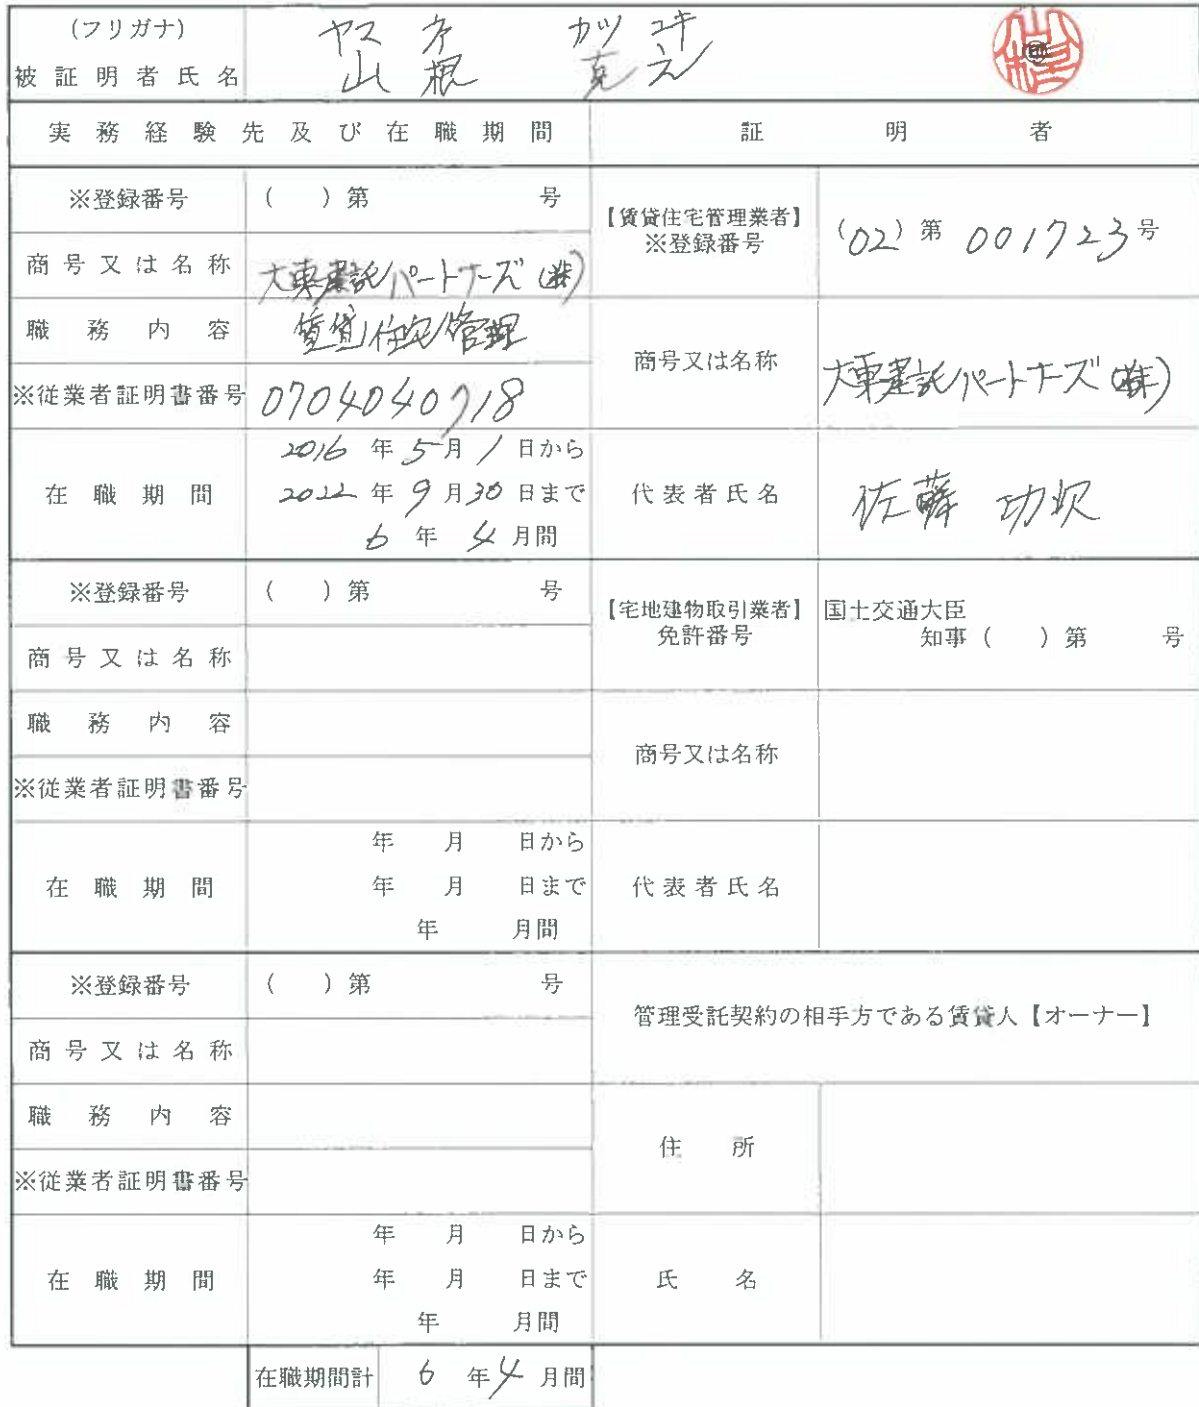 (フリガナ) ヤマ ネ カツ ユキ
被証明者氏名 山根 克之
実務経験先及び在職期間 証明者
※登録番号 ( )第 号
商号又は名称 大東建託パートナーズ(株)
職務内容 賃貸住宅管理
※従業者証明書番号 0704040718
在職期間 2016年5月1日から
2022年9月30日まで
6年4月間
【賃貸住宅管理業者】
※登録番号 (02)第001723号
商号又は名称 大東建託パートナーズ(株)
代表者氏名 佐藤 功次
※登録番号 ( )第 号
商号又は名称
職務内容
※従業者証明書番号
在職期間 年 月 日から
年 月 日まで
年 月間
【宅地建物取引業者】
免許番号 国土交通大臣
知事( )第 号
商号又は名称
代表者氏名
※登録番号 ( )第 号
商号又は名称
職務内容
※従業者証明書番号
在職期間 年 月 日から
年 月 日まで
年 月間
管理受託契約の相手方である賃貸人【オーナー】
住所
氏名
在職期間計 6年4月間